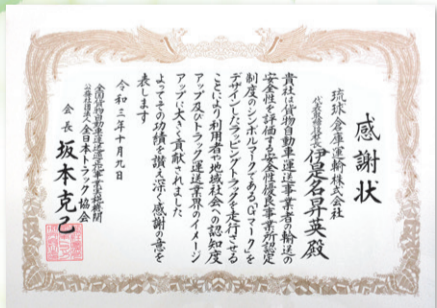 感謝状
琉球倉庫運輸株式会社
代表取締役社長 伊是名昇英殿
貴社は貨物自動車運送事業者の輸送の
安全性を評価する安全性優良事業所認定
制度のシンボルマークである「Gマーク」を
デザインしたラッピングトラックを走行させる
ことにより利用者や地域社会への認知度
アップ及びトラック運送業界のイメージ
アップに大きく貢献されました
よってその功績を讃え深く感謝の意を
表します
令和三年十月九日
全国貨物自動車運送適正化事業実施機関
公益社団法人全日本トラック協会
会長 坂本克己